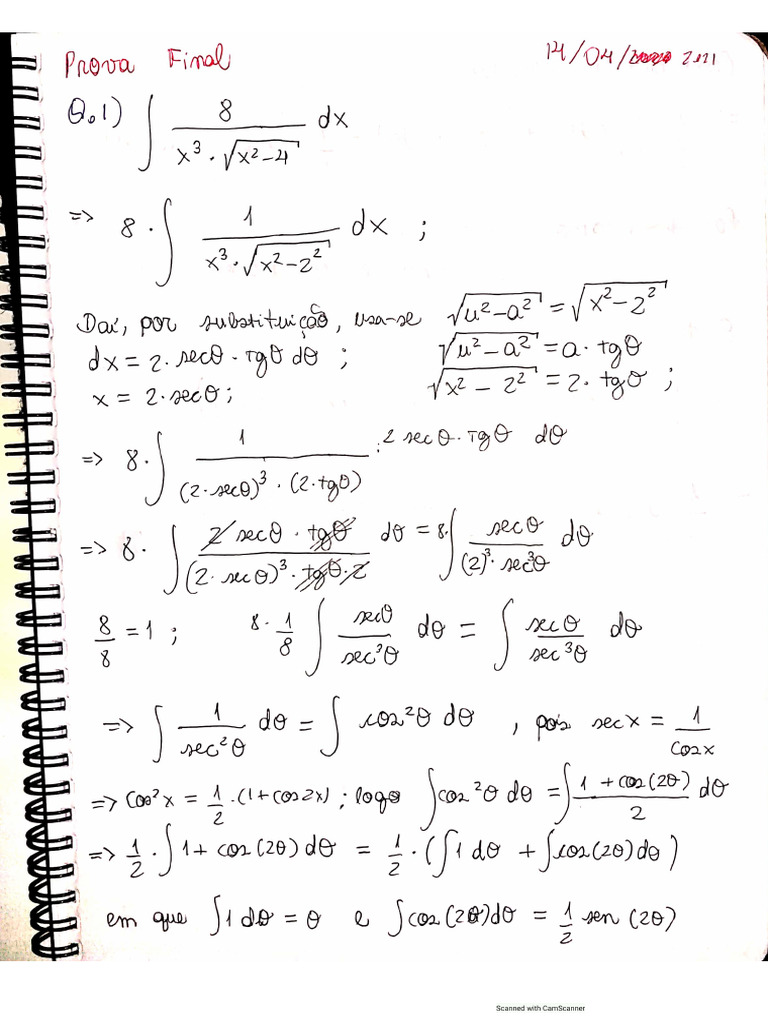 Prova Final 14/04/2021
Q.1) ∫ 8 / (x³ · √(x²−4)) dx
=> 8 · ∫ 1 / (x³ · √(x²−2²)) dx ;
Daí, por substituição, usa-se √(u²−a²) = √(x²−2²)
dx = 2 · secθ · tgθ dθ ; √(u²−a²) = a · tgθ
x = 2 · secθ ; √(x² − 2²) = 2 · tgθ ;
=> 8 · ∫ 1 / ((2 · secθ)³ · (2 · tgθ)) · 2 secθ · tgθ dθ
=> 8 · ∫ 2 secθ · tgθ / ((2 · secθ)³ · tgθ · 2) dθ = 8 · ∫ secθ / ((2)³ · sec³θ) dθ
8/8 = 1 ; 8 · 1/8 ∫ secθ / sec³θ dθ = ∫ secθ / sec³θ dθ
=> ∫ 1 / sec²θ dθ = ∫ cos²θ dθ , pois secx = 1 / cosx
=> cos²x = 1/2 · (1 + cos2x) ; logo ∫ cos²θ dθ = ∫ (1 + cos(2θ)) / 2 dθ
=> 1/2 · ∫ 1 + cos(2θ) dθ = 1/2 · (∫ 1 dθ + ∫ cos(2θ) dθ)
em que ∫ 1 dθ = θ e ∫ cos(2θ) dθ = 1/2 sen (2θ)
Scanned with CamScanner